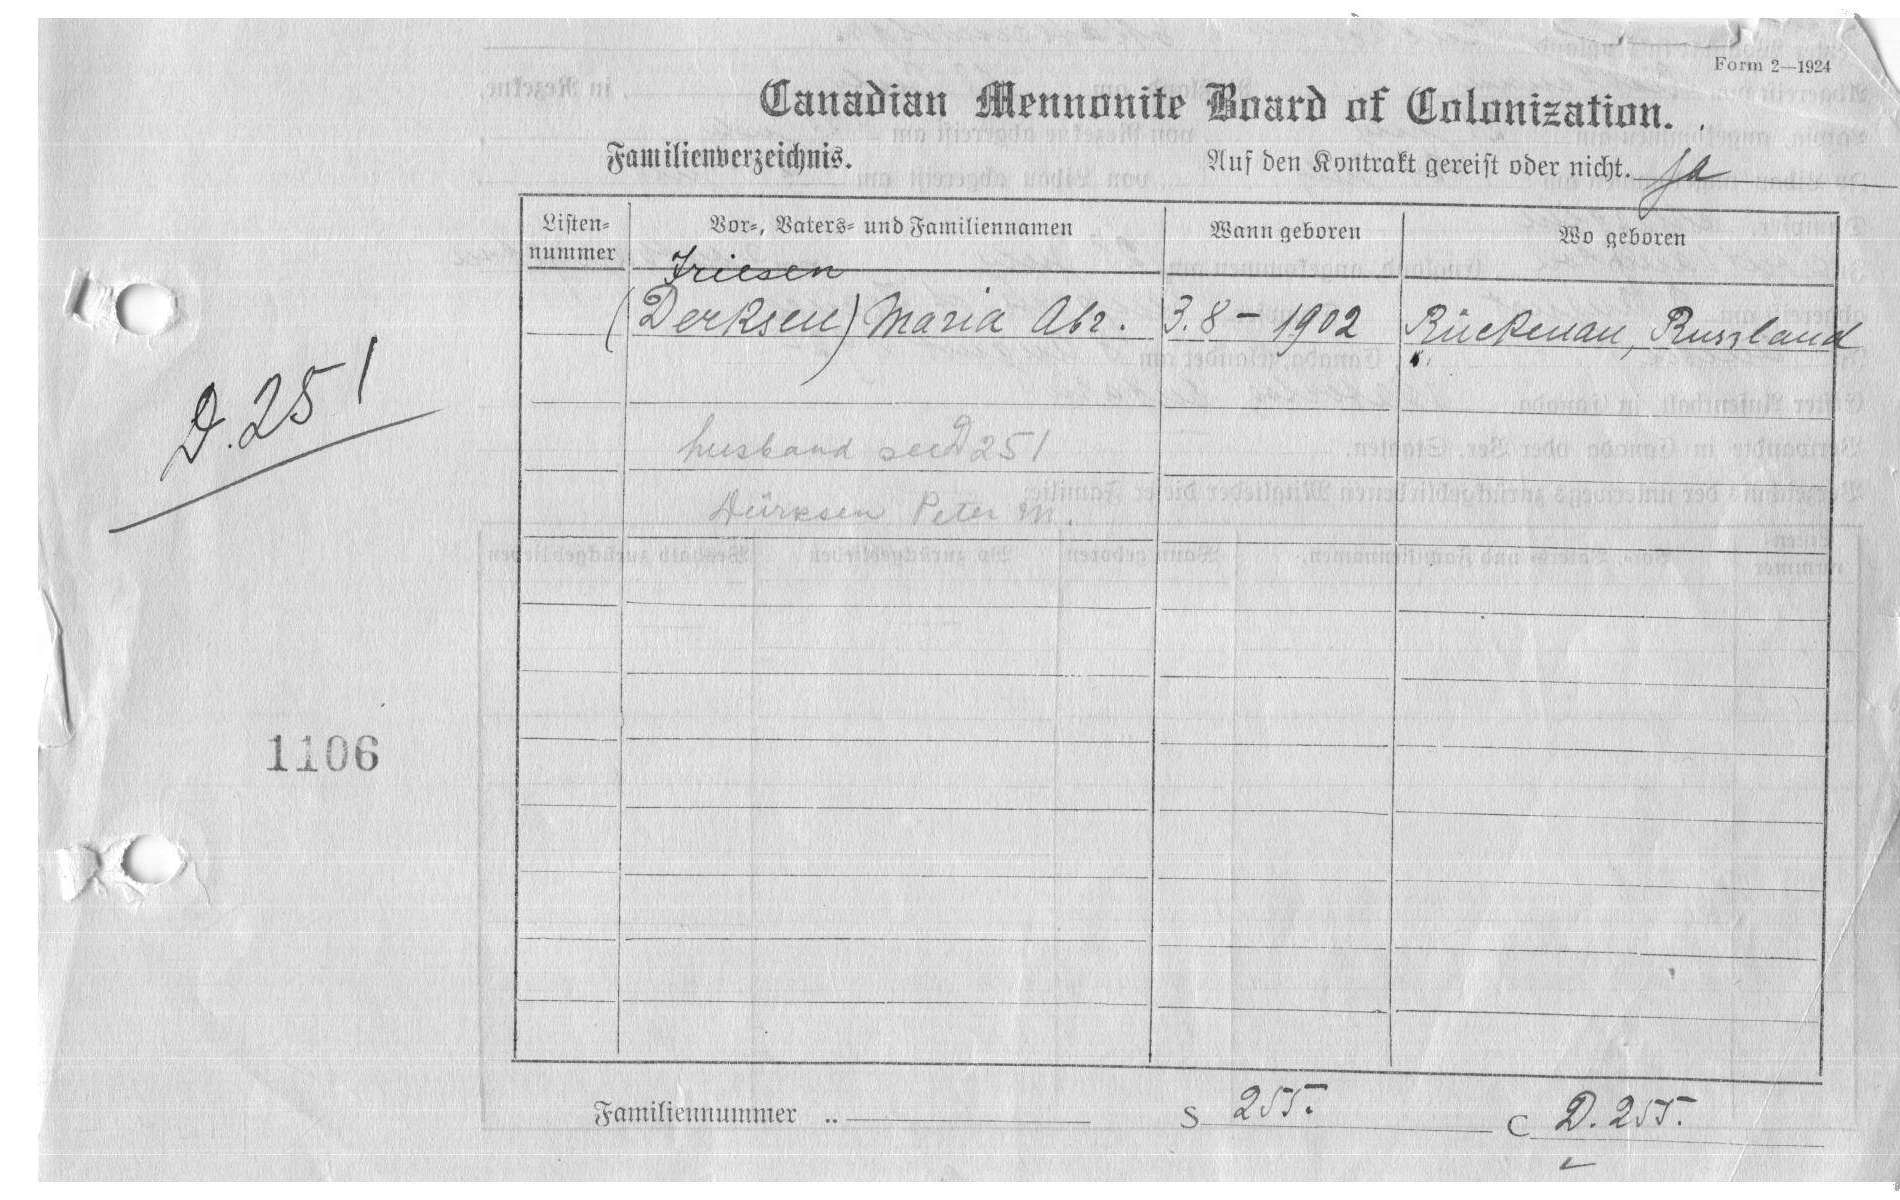 Form 2—1924
Canadian Mennonite Board of Colonization.
Familienverzeichnis.
Auf den Kontrakt gereist oder nicht. Ja
Listen-nummer
Vor-, Vaters- und Familiennamen
Wann geboren
Wo geboren
Friesen
(Derksen) Maria Abr. 3.8 – 1902 Rückenau, Russland
D. 251
husband see D251
Dürksen Peter M.
1106
Familiennummer .. S 255. C D. 255.